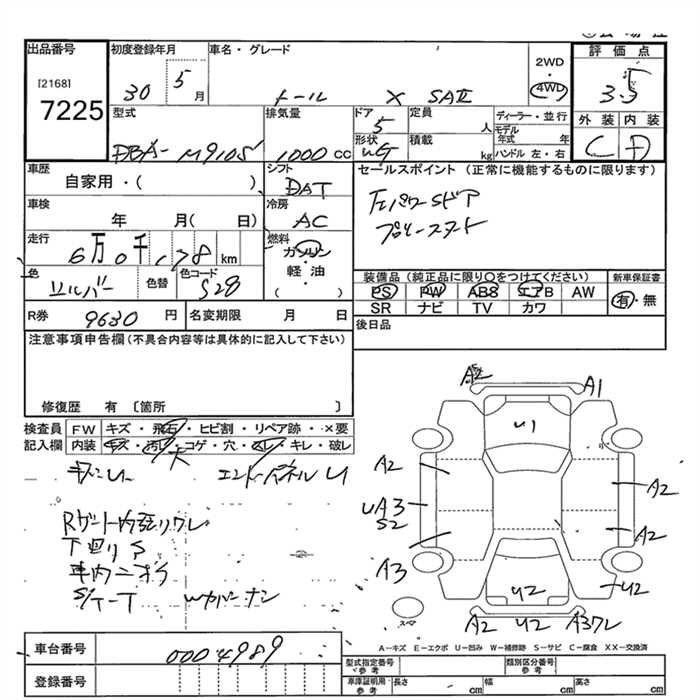 出品番号
[2168]
7225
初度登録年月
30 5月
車名・グレード
トール X SAⅡ
2WD
・
4WD
評価点
3.5
外装 内装
C D
型式
DBA- M910S
排気量
1000 CC
ドア
5
形状
WG
定員
人
積載
kg
ディーラー・並行
モデル年式 年
ハンドル 左・右
車歴
自家用・( )
シフト
DAT
車検
年 月( 日)
冷房
AC
走行
6万0千178km
燃料
ガソリン
・
軽油
( )
色
シルバー
色替
色コード
S28
R券
9630円
名変期限 月 日
セールスポイント(正常に機能するものに限ります)
左パワーSドア
プッシュスタート
装備品(純正品に限り○をつけてください)
PS PW ABS エアB AW
SR ナビ TV カワ
新車保証書
有・無
後日品
注意事項申告欄(不具合内容等は具体的に記入して下さい)
修復歴 有〔箇所 〕
検査員
記入欄
FW キズ・飛石・ヒビ割・リペア跡・×要
内装 キズ・汚れ・コゲ・穴・スレ・キレ・破レ
大
Rゲート内張りワレ
下廻りS
車内ニオイ
S/T-T Wカバーナシ
A2 A1
U1
A2
A2
UA3
S2
A2
A3
U2 U2
A2 U2
スペア
A-キズ E-エクボ U-凹み W-補修跡 S-サビ C-腐食 XX-交換済
車台番号
0004989
登録番号
型式指定番号
参考
類別区分番号
参考
車庫証明用
参考
長さ cm 幅 cm 高さ cm